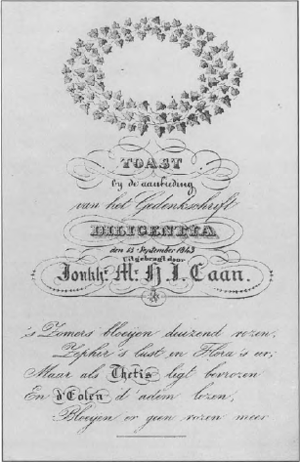 TOAST
bij de aanbieding
van het Gedenkschrift
DILIGENTIA
den 13 September 1843
uitgebragt door
Jonkhr. Mr. H. J. Caan.
's Zomers bloeijen duizend rozen,
Zephir's lust en Flora's eer;
Maar als Thetis ligt bevrozen
En d'Eolen d' adem lozen,
Bloeijen er geen rozen meer